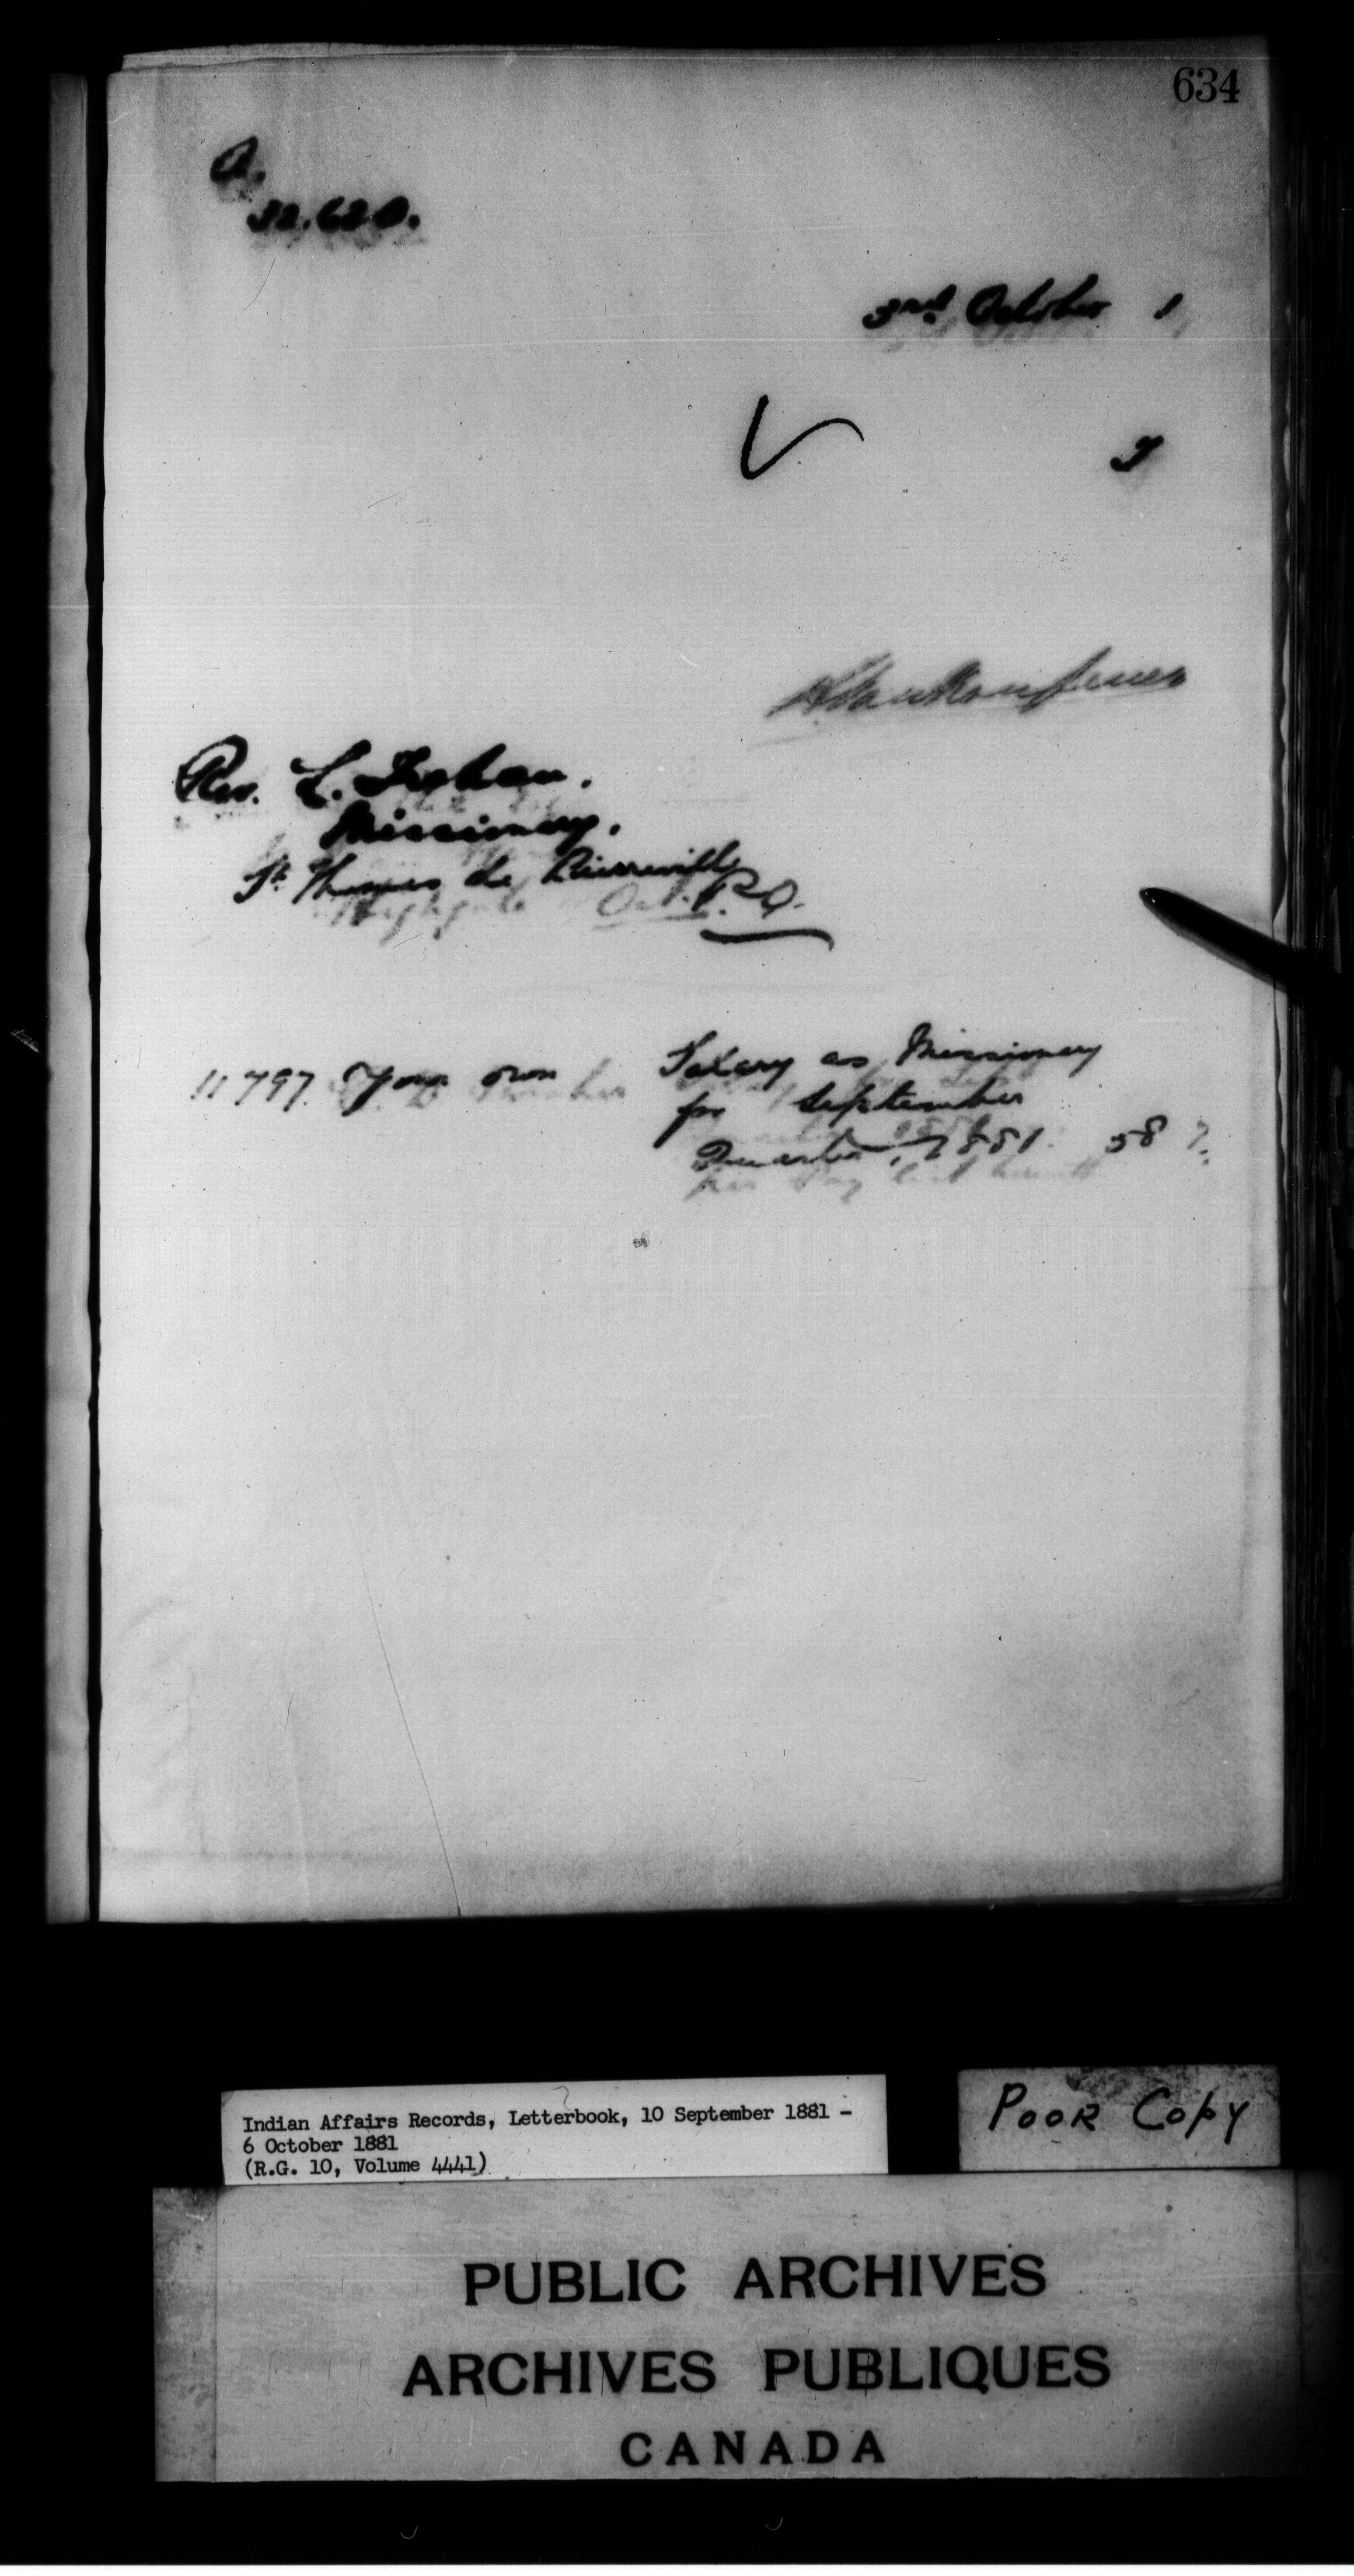 634
A.
32.620.
3rd October 1
Rev. L.
Missionary.
St Thomas de Pierreville
P.Q.
11797. Your own Salary as Missionary
for September
Quarter, 1881. 58
Indian Affairs Records, Letterbook, 10 September 1881 -
6 October 1881
(R.G. 10, Volume 4441)
POOR COPY
PUBLIC ARCHIVES
ARCHIVES PUBLIQUES
CANADA